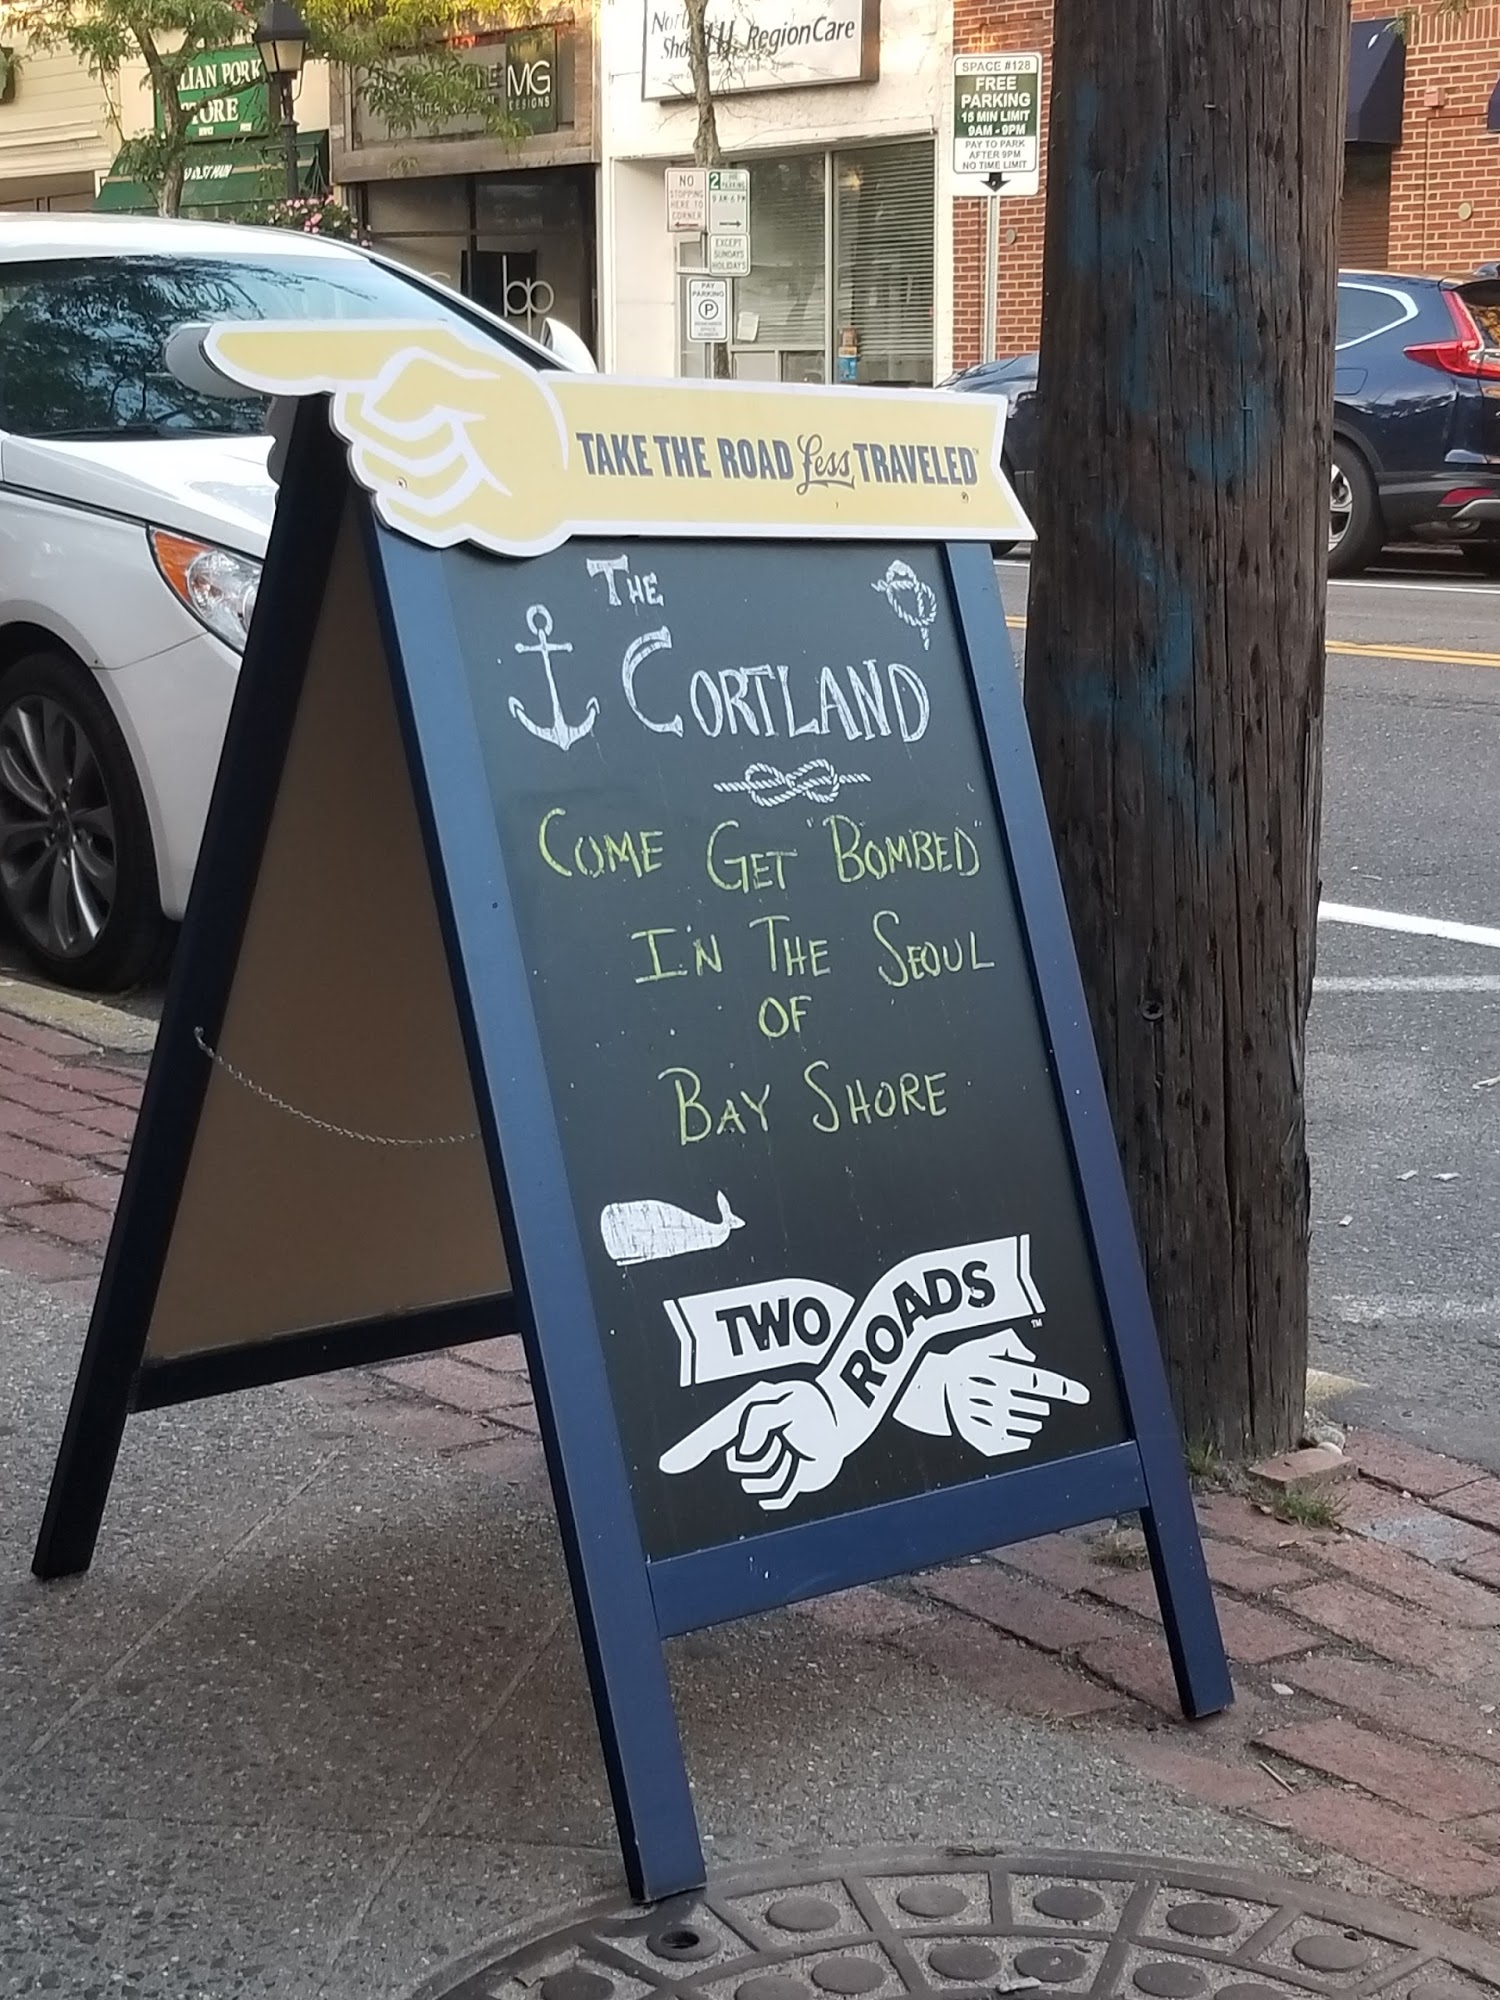 LIAN PORK
STORE
MG
DESIGNS
RegionCare
SPACE #128
FREE
PARKING
15 MIN LIMIT
9AM - 9PM
PAY TO PARK
AFTER 9PM
NO TIME LIMIT
NO
STOPPING
HERE TO
CORNER
2
9 AM-6 PM
EXCEPT
SUNDAYS
HOLIDAYS
PAY
PARKING
P
TAKE THE ROAD Less TRAVELED™
THE
CORTLAND
COME GET "BOMBED"
IN THE SEOUL
OF
BAY SHORE
TWO ROADS™